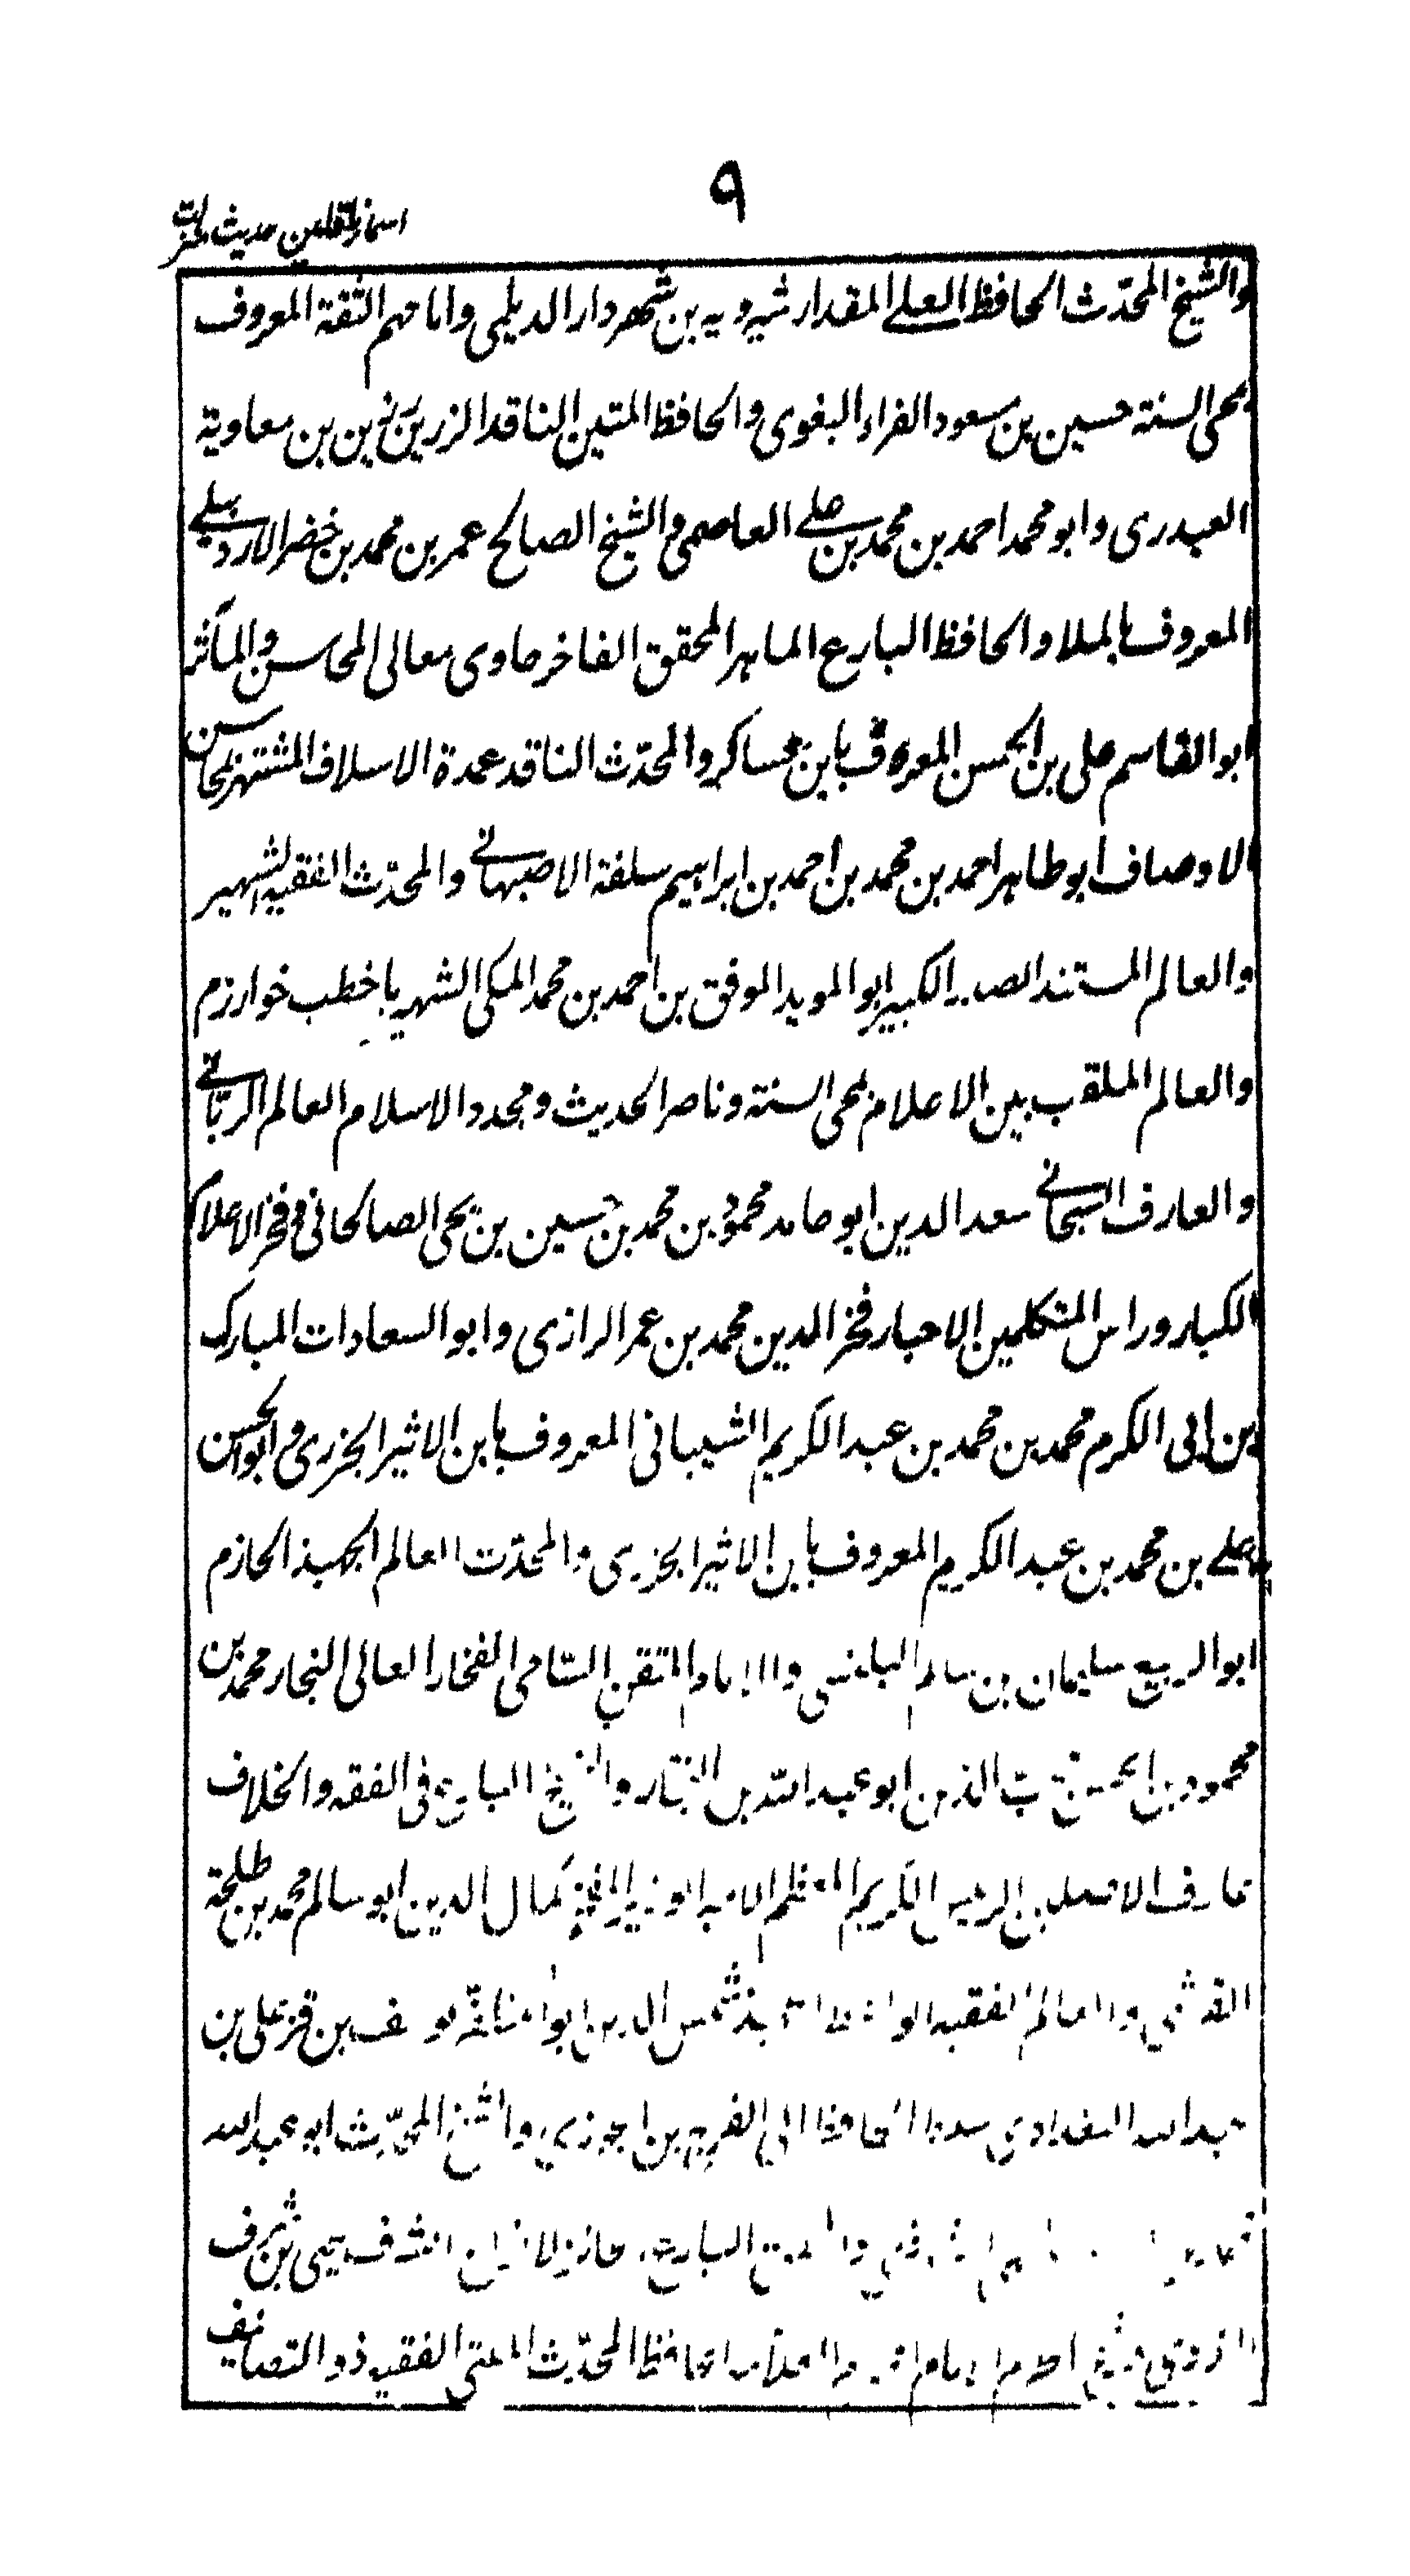 ٩
اسماء ناقلین حدیث
والشیخ المحدّث الحافظ العلی المقدار شیرویه بن شهردار الدیلمی وامامهم الثّقة المعروف
بمحی السنة حسین بن مسعود الفراء البغوی والحافظ المتین الناقد الزرین رزین بن معاویة
العبدری وابو محمد احمد بن محمد بن علی العاصمی والشیخ الصالح عمر بن محمد بن خضر الاردبیلی
المعروف بالملا والحافظ البارع الماهر المحقق الفاخر حاوی معالی المحاسن والمآثر
ابو القاسم علی بن الحسن المعروف بابن عساکر والمحدّث الناقد عمدة الاسلاف المشتهر بمحاسن
الاوصاف ابو طاهر احمد بن محمد بن احمد بن ابراهیم سلفة الاصبهانی والمحدّث الفقیه الشهیر
والعالم المستند الصدر الکبیر ابو الموید الموفق بن احمد بن محمد المکی الشهیر باخطب خوارزم
والعالم الملقب بین الاعلام بمحی السنة وناصر الحدیث ومجدد الاسلام العالم الربّانی
والعارف السبحانی سعد الدین ابو حامد محمود بن محمد بن حسین بن یحی الصالحانی وفخر الاعلام
الکبار وراس المتکلمین الاحبار فخر الدین محمد بن عمر الرازی وابو السعادات المبارک
بن ابی الکرم محمد بن محمد بن عبد الکریم الشیبانی المعروف بابن الاثیر الجزری وابو الحسن
علی بن محمد بن عبد الکریم المعروف بابن الاثیر الجزری والمحدّث العالم الجهبذ الحازم
ابو الربیع سلیمان بن سالم البلنسی والامام المتقن السّامی الفخار العالی النجار محمد بن
محمود بن الحسن محب الدین ابو عبد اللّه بن النجّار والشیخ البارع فی الفقه والخلاف
الرئیس الکریم المعظم کمال الدین ابو سالم محمد بن طلحة
القرشی والعالم الفقیه الواعظ شمس الدین ابو المظفّر یوسف بن قزعلی بن
عبد الله البغدادی سبط الحافظ ابی الفرج بن الجوزی والشیخ المحدّث ابو عبد الله
البارع یحیی بن شرف
الحافظ المحدّث الفقیه ذو التصانیف